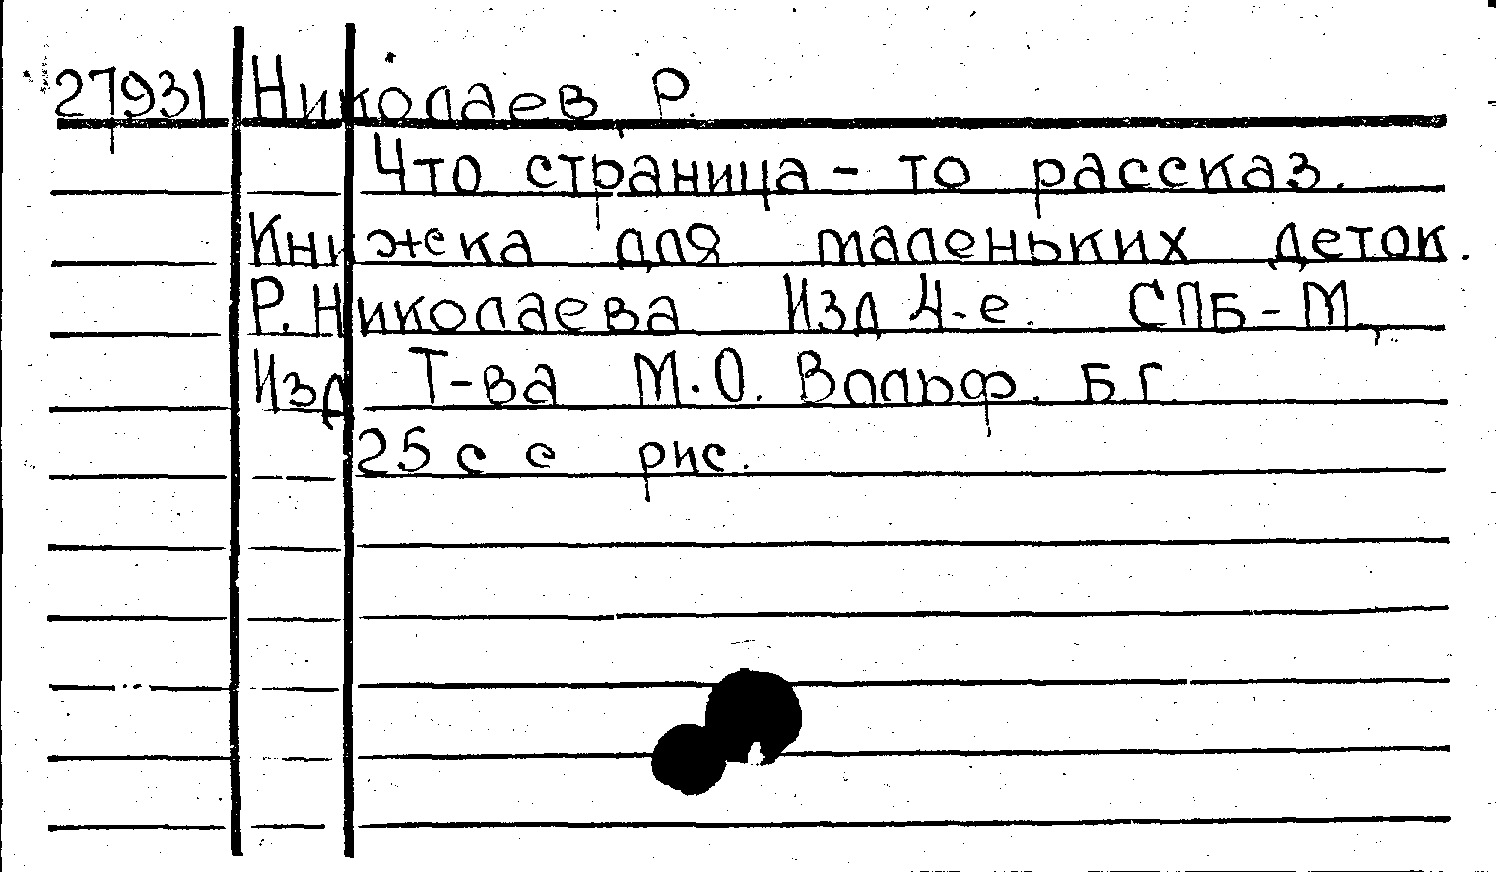 27931 Николаев, Р.
Что страница - то рассказ.
Книжка для маленьких деток.
Р. Николаева Изд 4-е. СПБ-М.,
Изд Т-ва М.О. Вольф. Б.Г.
25 с с рис.